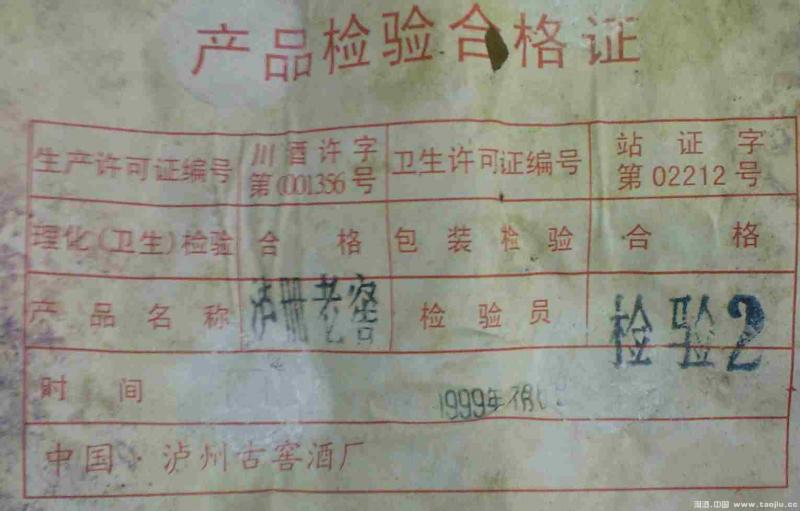 产品检验合格证
生产许可证编号 川酒许字第(001356号 卫生许可证编号 站证字第02212号
理化(卫生)检验 合格 包装检验 合格
产品名称 泸州老窖 检验员 检验2
时间 1999年
中国·泸州古窖酒厂
淘酒.中国 www.taojiu.cc